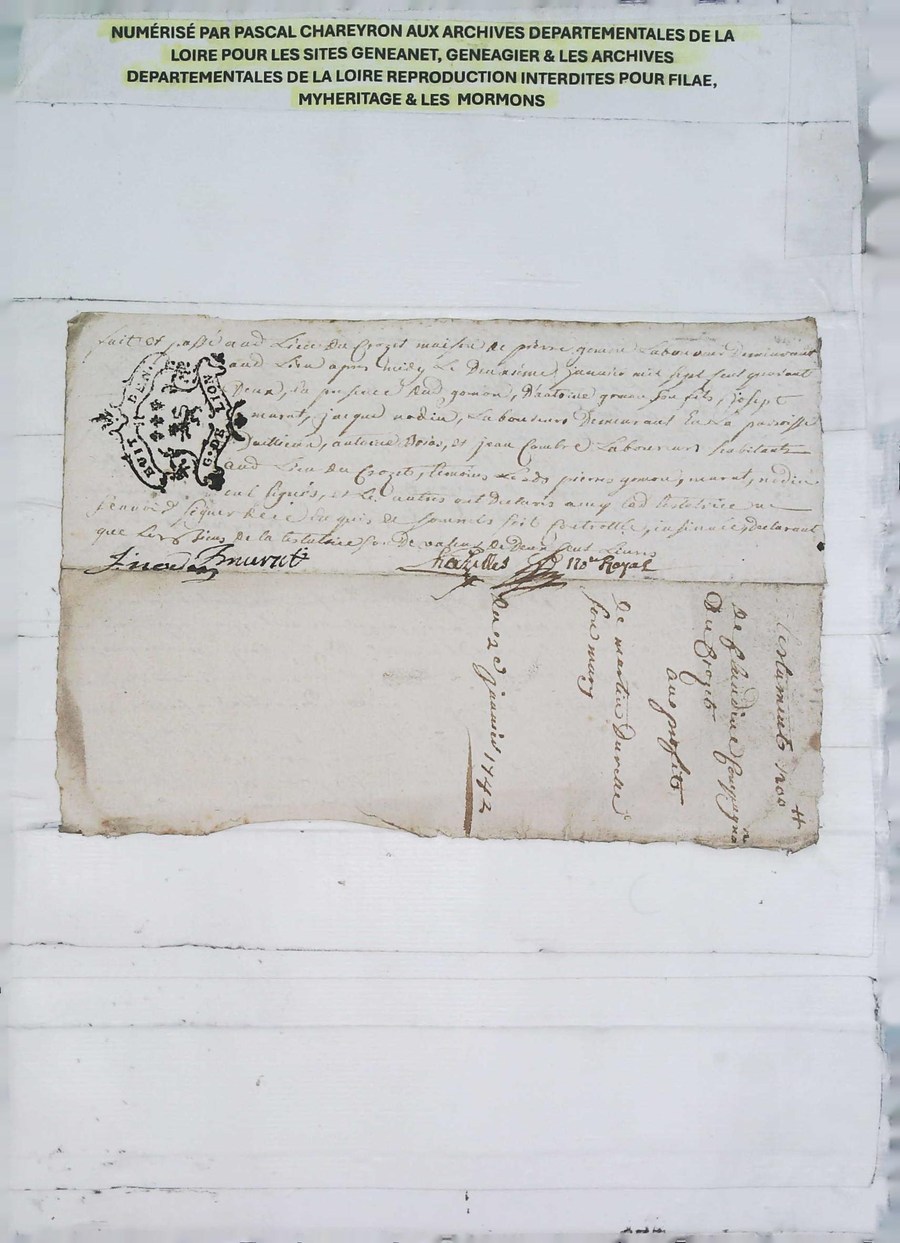 NUMÉRISÉ PAR PASCAL CHAREYRON AUX ARCHIVES DEPARTEMENTALES DE LA
LOIRE POUR LES SITES GENEANET, GENEAGIER & LES ARCHIVES
DEPARTEMENTALES DE LA LOIRE REPRODUCTION INTERDITES POUR FILAE,
MYHERITAGE & LES MORMONS
fait et passé aud Lieu du Crozet maison de pierre gomon Laboureur Demeurant
aud Lieu apres midy Le Deuxieme janvier mil sept cent quarant
Deux, en presence dud gomon, D'antoine gomon son fils, Josept
murat, jacque nodin, Laboureurs Demeurant En La paroisse
antoine et jean Combre Laboureurs habitants
aud Lieu du Crozet, temoins Lesd pierre gomon, murat, nodin
ont signés, et Le autres ont declarés avec lad testatrice ne
de ce enquis et sommés soit controllé, insinué declarant
que Les biens de la testatrice son De valeur de Deux cent Livres
murat
Chazelles No.re Royal
HUIT DEN
GNRE LION
testament 200 #
De Claudine
Du Crozet
au profit
de martin
son mary
Du 2 janvier 1742